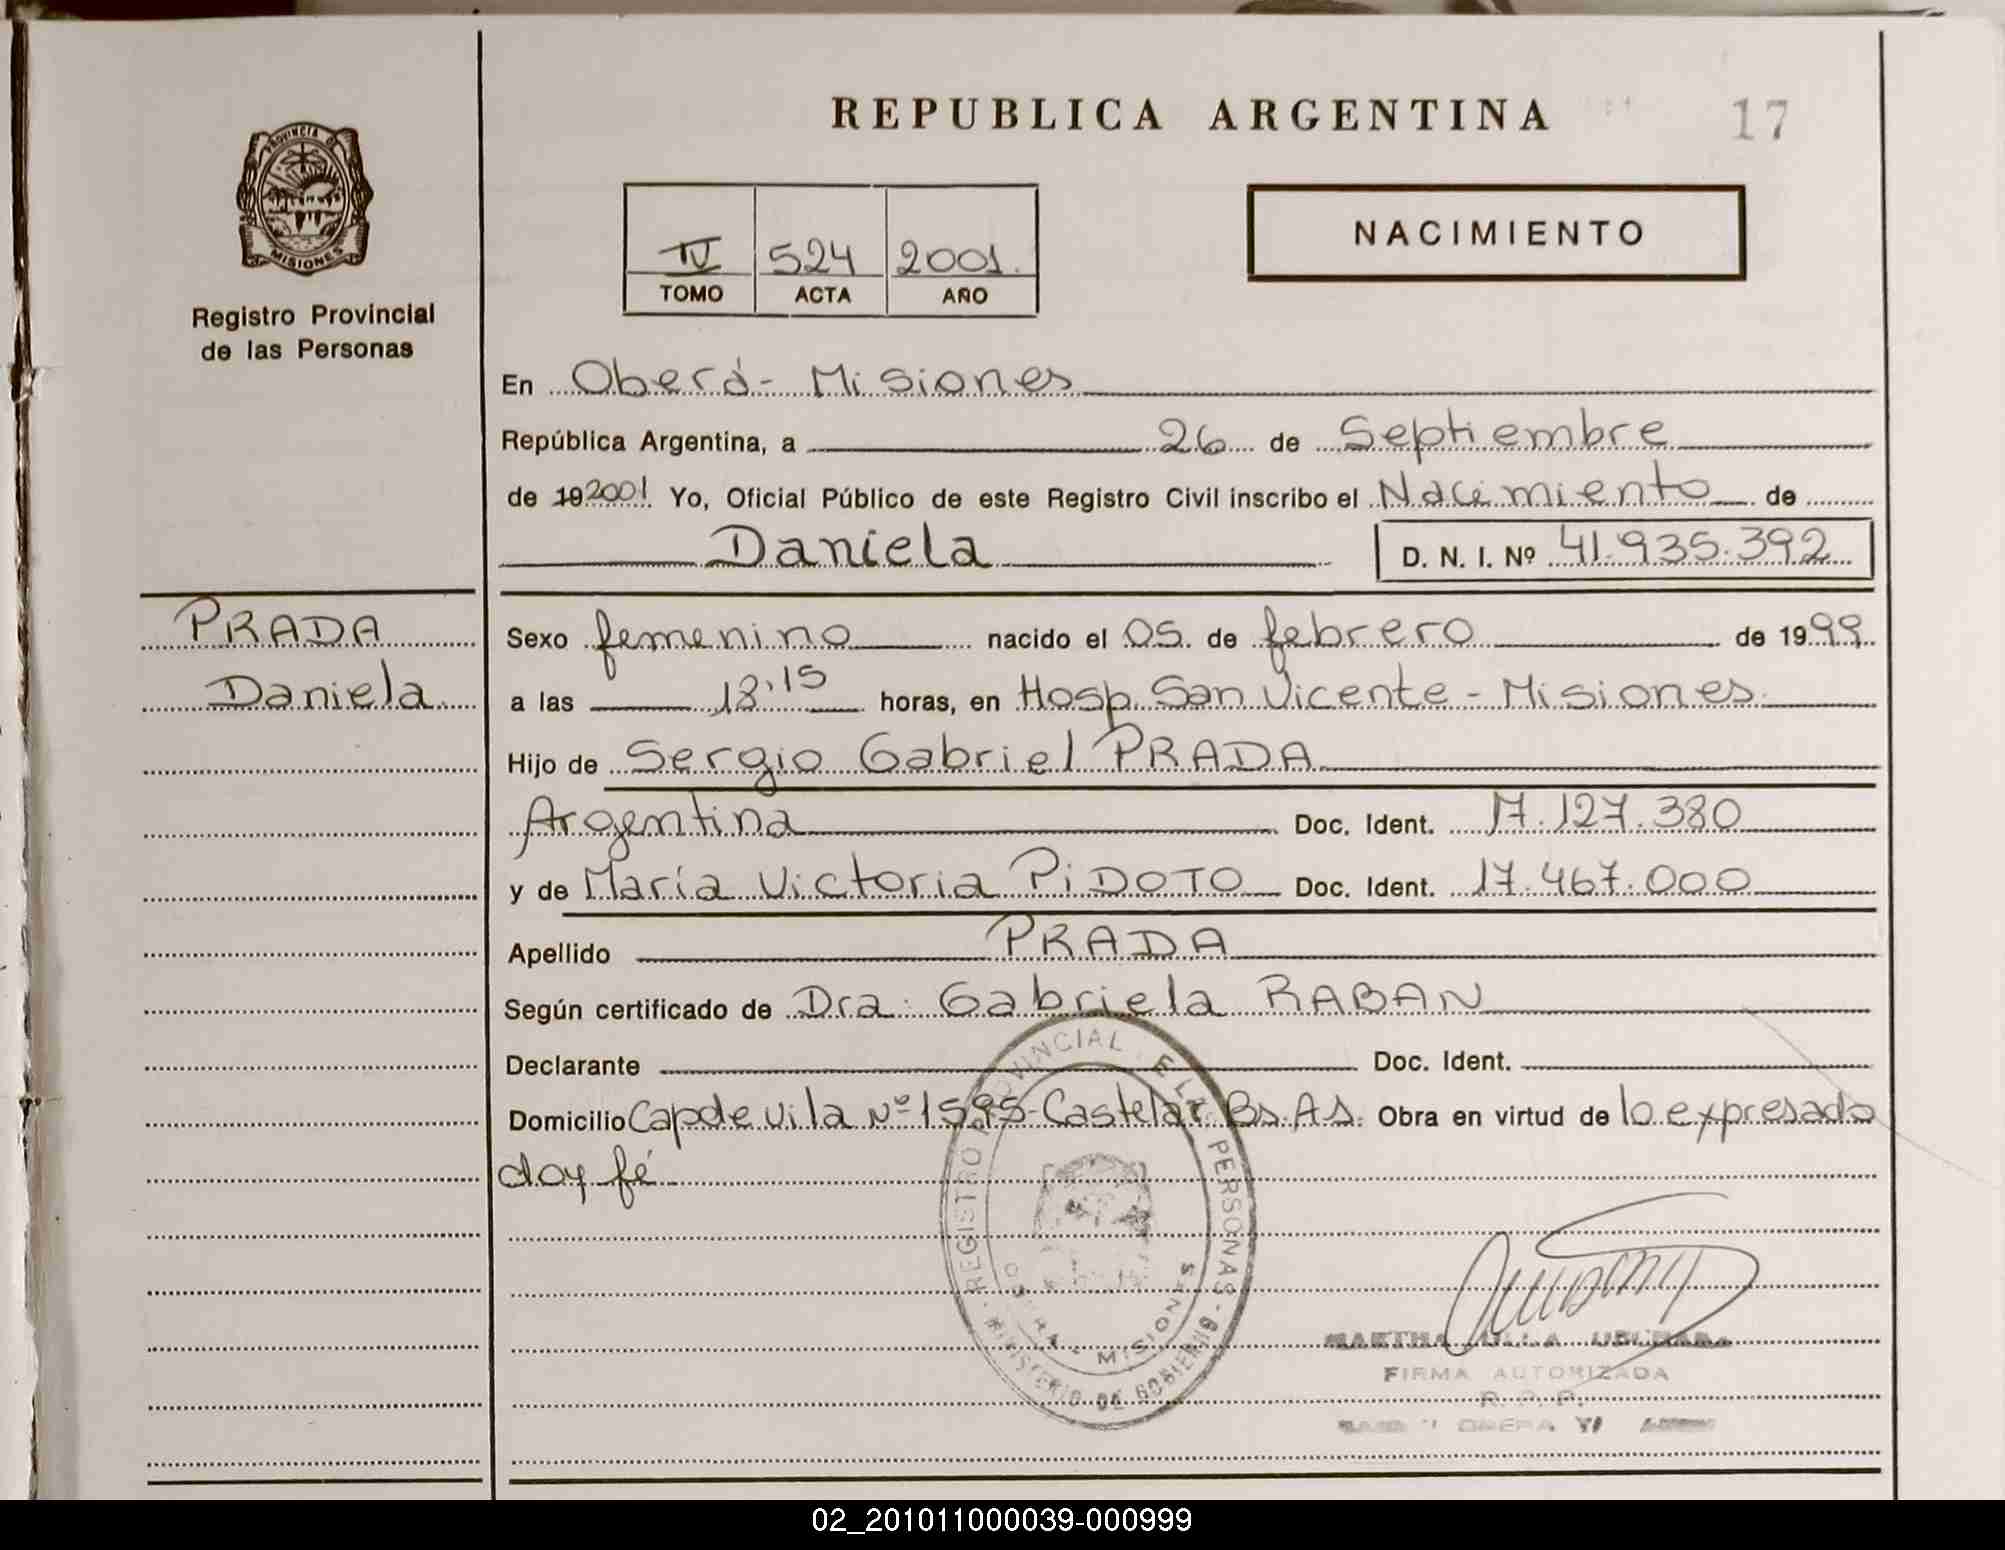 REPUBLICA ARGENTINA
17
PROVINCIA DE
MISIONES
Registro Provincial
de las Personas
IV 524 2001.
TOMO ACTA AÑO
NACIMIENTO
En Oberá - Misiones
República Argentina, a 26 de Septiembre
de 19 2001 Yo, Oficial Público de este Registro Civil inscribo el Nacimiento de
Daniela D. N. I. Nº 41.935.392
PRADA
Daniela
Sexo femenino nacido el 05 de febrero de 1999
a las 18:15 horas, en Hosp. San Vicente - Misiones
Hijo de Sergio Gabriel PRADA
Argentina Doc. Ident. 17.127.380
y de María Victoria PiDOTO Doc. Ident. 17.467.000
Apellido PRADA
Según certificado de Dra. Gabriela RABAN
Declarante Doc. Ident.
Domicilio Capdevila Nº 1595 - Castelar Bs. As. Obra en virtud de lo expresado
doy fé
REGISTRO PROVINCIAL E LAS PERSONAS
MINISTERIO DE GOBIERNO
MISIONES
MARTHA
FIRMA AUTORIZADA
R. P. P.
02_201011000039-000999